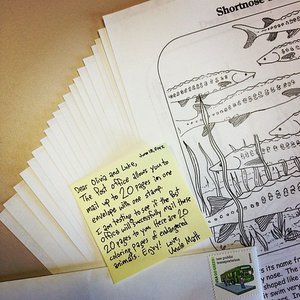 Shortnose
Dear Olivia and Luke,
The Post office allows you to
mail up to 20 pages in one
envelope with one stamp.
I am testing to see if the Post
office will successfully mail these
20 pages to you. Here are 20
coloring pages of endangered
animals. Enjoy! Love,
Uncle Matt
its name fr
y nose. The
shaped like
it swim very